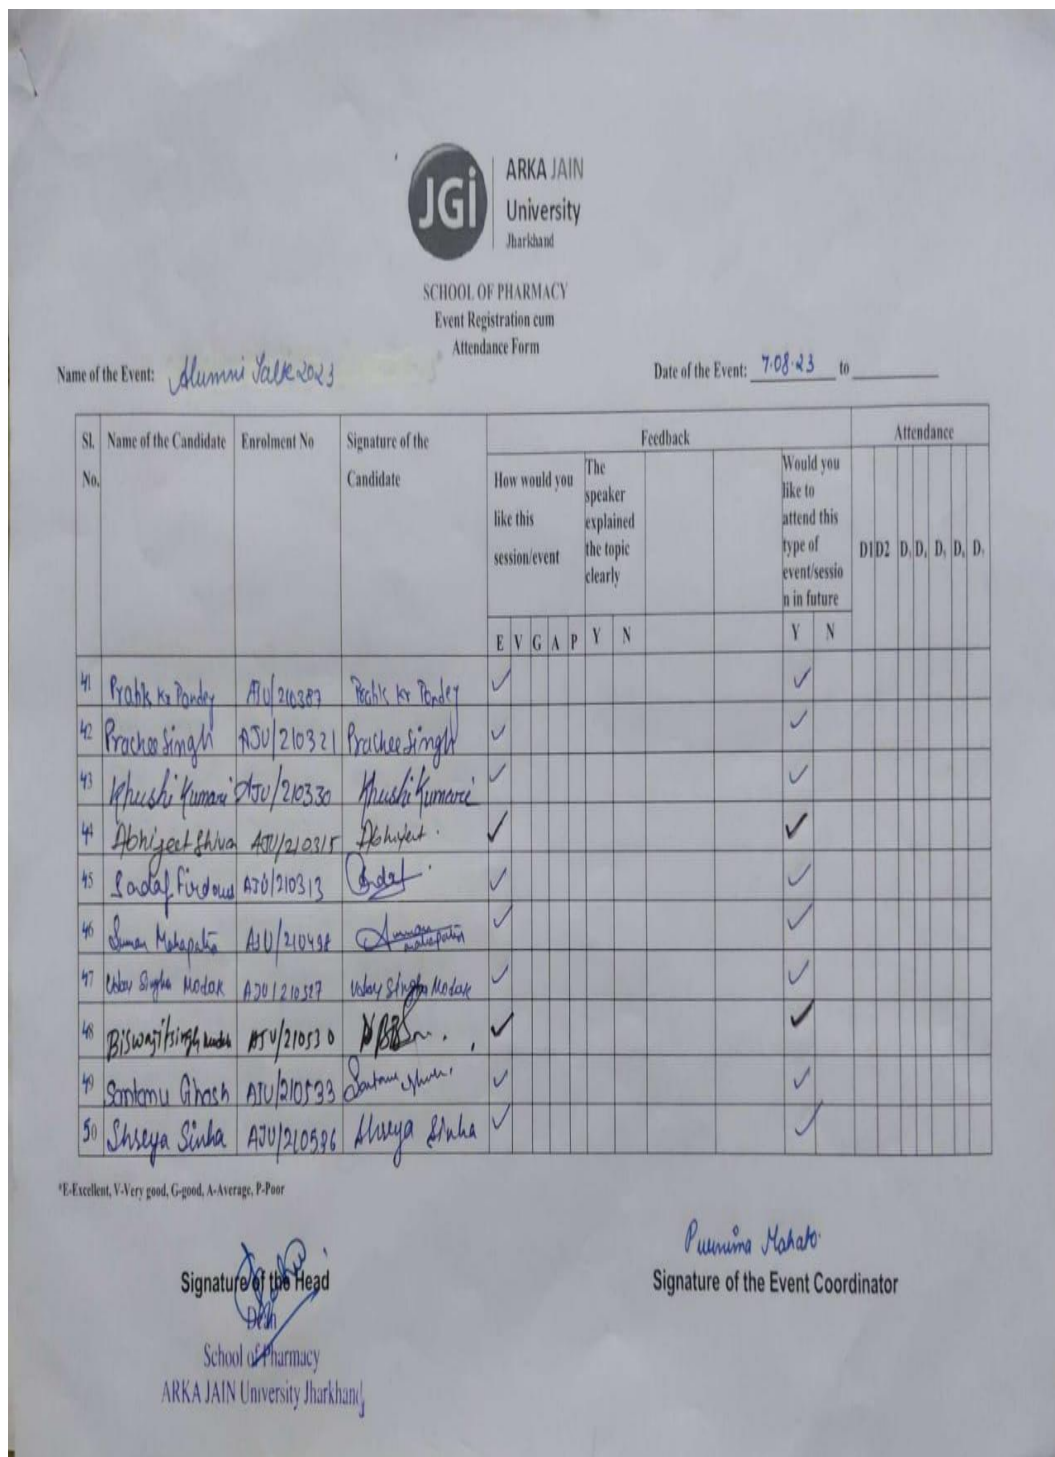 JGi
ARKA JAIN
University
Jharkhand
SCHOOL OF PHARMACY
Event Registration cum
Attendance Form
Name of the Event: Alumni Talk 2023 Date of the Event: 7.08.23 to
Sl. No. Name of the Candidate Enrolment No Signature of the Candidate Feedback Attendance
How would you like this session/event The speaker explained the topic clearly Would you like to attend this type of event/sessio n in future D1 D2 D, D, D, D, D,
E V G A P Y N Y N
41 Pratik Kr Pandey AJU/210387 Pratik Kr Pandey ✓ ✓
42 Prachee Singh AJU/210321 Prachee Singh ✓ ✓
43 Khushi Kumari AJU/210330 Khushi Kumari ✓ ✓
44 Abhijeet Shiva AJU/210315 Abhijeet ✓ ✓
45 Sadaf Firdous AJU/210313 Sadaf ✓ ✓
46 Suman Mahapatra AJU/210498 Suman Mahapatra ✓ ✓
47 Uday Singha Modak AJU/210527 Uday Singha Modak ✓ ✓
48 Biswajit singh AJU/210530 ✓ ✓
49 Santanu Ghosh AJU/210533 Santanu Ghosh ✓ ✓
50 Shreya Sinha AJU/210596 Shreya Sinha ✓ ✓
*E-Excellent, V-Very good, G-good, A-Average, P-Poor
Purnima Mahato
Signature of the Head Signature of the Event Coordinator
School of Pharmacy
ARKA JAIN University Jharkhand